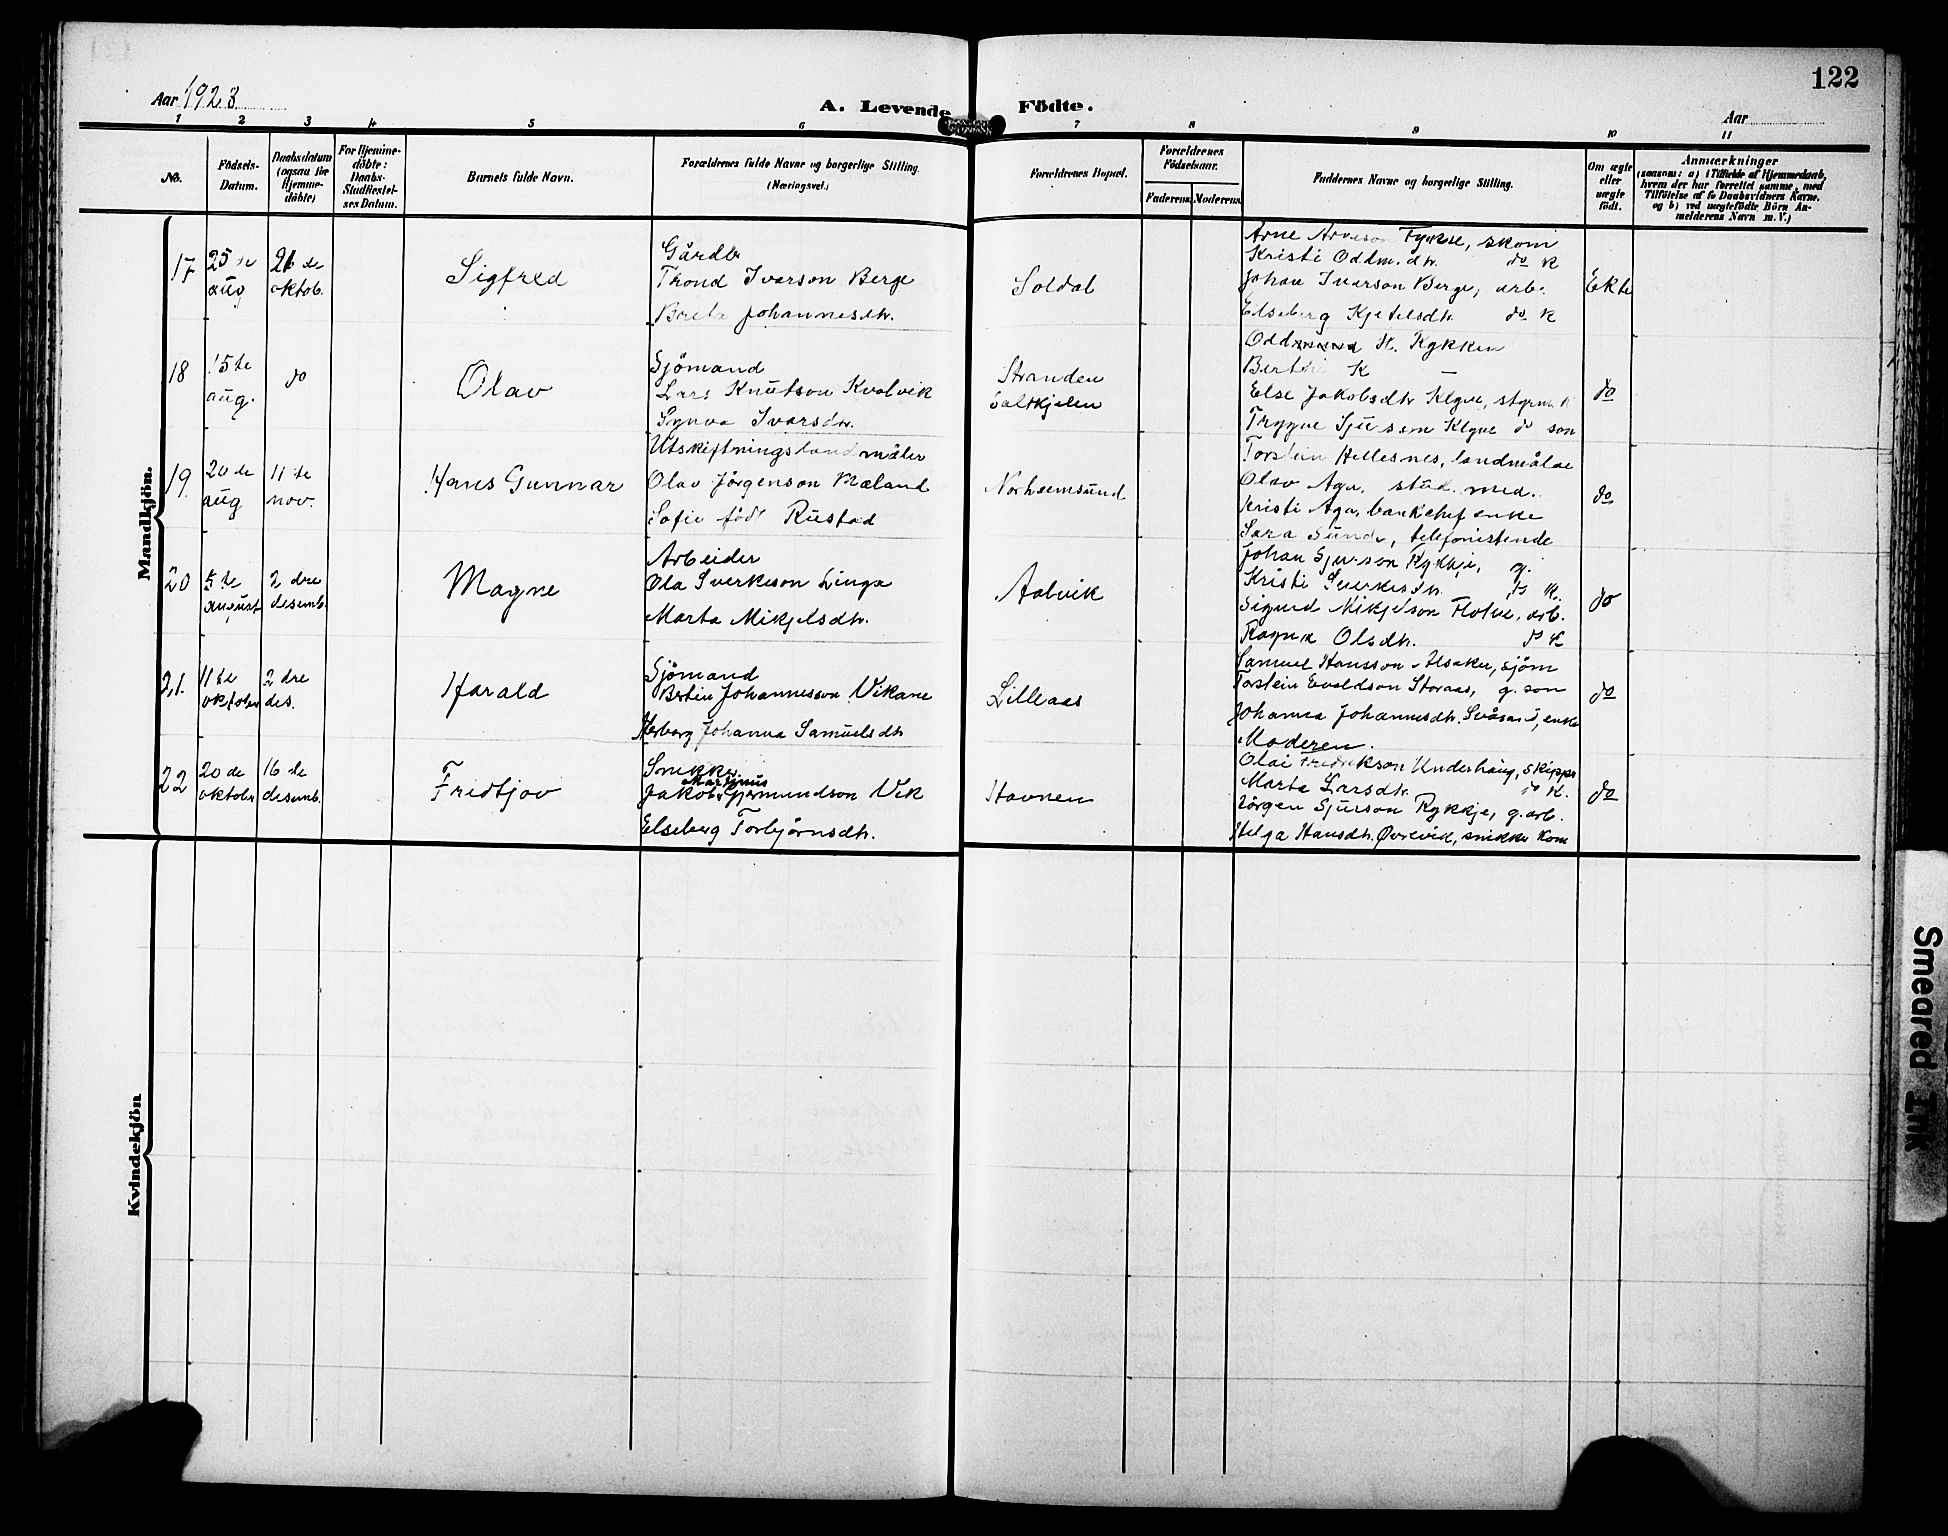 122
Aar 1923
A. Levende Födte.
Aar
1 2 3 4 5 6 7 8 9 10 11
No.
Födsels-
Datum.
Daabsdatum
(ogsaa for
Hjemme-
döbte)
For Hjemme-
döbte:
Daabs-
Stadfæstel-
ses Datum.
Barnets fulde Navn.
Forældrenes fulde Navne og borgerlige Stilling.
(Næringsvei.)
Forældrenes Bopæl.
Forældrenes
Födselsaar.
Faderens Moderens
Faddernes Navne og borgerlige Stilling.
Om ægte
eller
uægte
födt.
Anmærkninger
(saasom: a) i Tilfælde af Hjemmedaab,
hvem der har forrettet samme, med
Tilföielse af to Daabsvidners Navne.
og b) ved uægtefödte Börn An-
melderens Navn m. V.)
Mandkjön.
17
25 de
aug
21 de
oktob.
Sigfred
Gårdb
Trond Ivarson Berge
Berta Johannesdtr.
Soldal
Arne Arneson Fykse, skom
Kristi Oddm.dtr. do K
Johan Ivarson Berge, arb.
Elseberg Kjetelsdtr. do K
Ekte
18
15 de
aug.
do
Olav
Sjömand
Lars Knutson Kvalvik
Synva Ivarsdtr.
Stranden
Saltkjelen
Oddmund H. Rykken
K
Else Jakobsdtr Klyve, styrm K
Trygve Sjurson Klyve do son
do
19
20 de
aug
11 te
nov.
Hans Gunnar
Utskiftningslandmåler
Olav Jörgenson Mæland
Sofie födt Rustad
Norheimsund
Torstein Hellesnes, landmålar
Olav Aga, stud. med.
Kristi Aga, bankchef enke
Sara Sunde, telefonistende
do
20
5 te
august
2 dre
desemb.
Magne
Arbeider
Ola Sverkeson Linga
Marta Mikjelsdtr.
Aalvik
Johan Sjurson Rykkje, g.
Kristi Sverkesdtr. do K.
Sigurd Mikjelson Flotve, arb.
Ragna Olsdtr. do K
do
21.
11 te
oktober
2 dre
des.
Harald
Sjömand
Bertin Johannesson Vikane
Herborg Johanna Samuelsdtr
Lilleaas
Samuel Hansson Alsaker, sjöm
Torstein Evaldson Storaas, g. son
Johanna Johannesdtr. Svåsand, enke
Moderen.
do
22
20 de
oktober
16 de
desemb.
Fridtjov
Snekker
Martinus
Jakob Gjermundson Vik
Elseberg Torbjörnsdtr.
Havnen
Olai Fredrikson Underhaug, skipper
Marta Larsdtr. do K.
Jörgen Sjurson Rykkje, g. arb.
Helga Hansdtr. Øvrevid, snikker kona
do
Kvindekjön
Smeared Ink